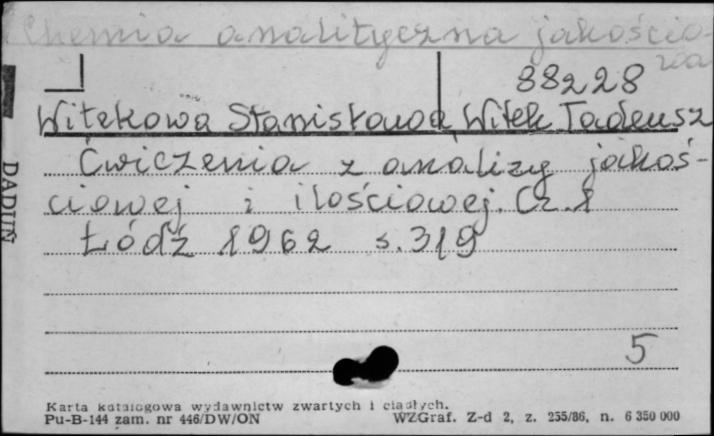 Chemia analityczna jakościo-
wa
88228
Witekowa Stanisława, Witek Tadeusz
Ćwiczenia z analizy jakoś-
ciowej i ilościowej. Cz. 1
Łódź 1962 s. 319
5
DADUŃ
Karta katalogowa wydawnictw zwartych i ciągłych.
Pu-B-144 zam. nr 446/DW/ON WZGraf. Z-d 2, z. 255/86, n. 6 350 000